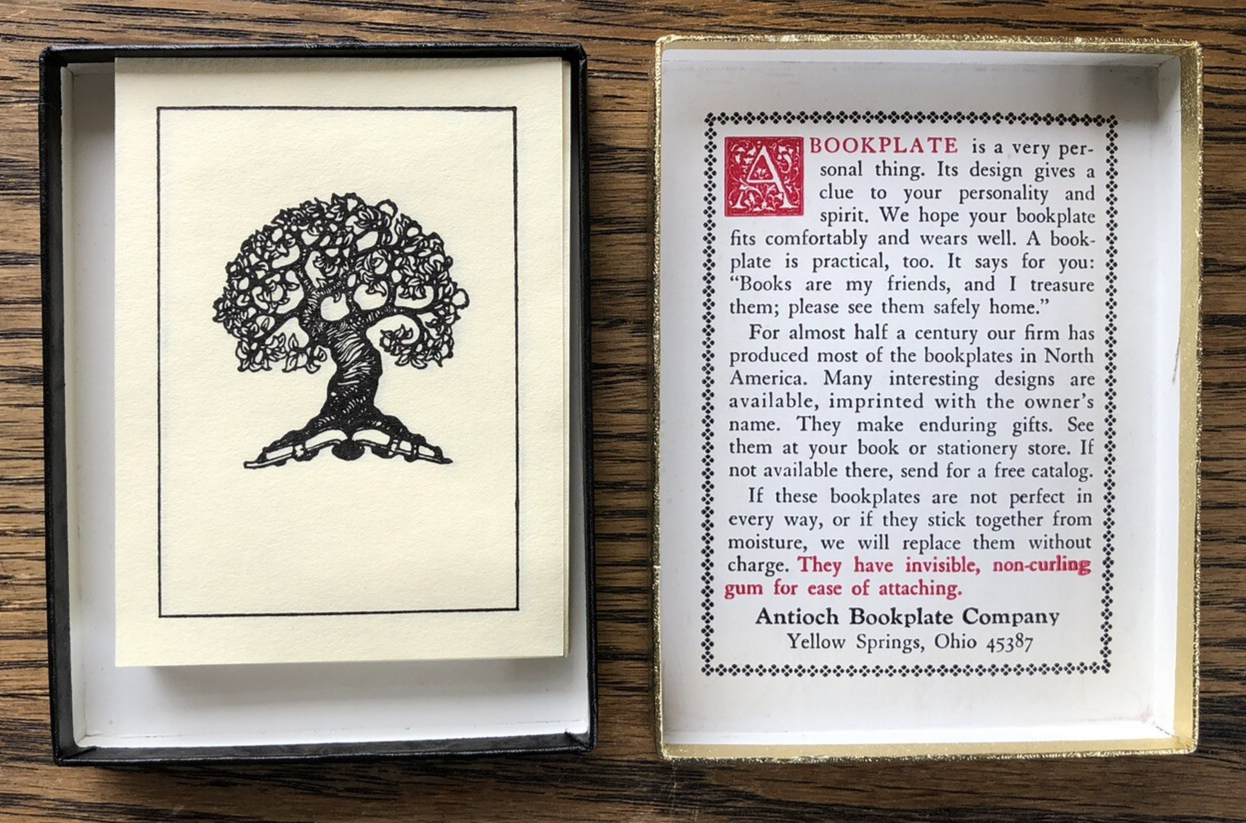 A BOOKPLATE is a very per-
sonal thing. Its design gives a
clue to your personality and
spirit. We hope your bookplate
fits comfortably and wears well. A book-
plate is practical, too. It says for you:
“Books are my friends, and I treasure
them; please see them safely home.”
For almost half a century our firm has
produced most of the bookplates in North
America. Many interesting designs are
available, imprinted with the owner’s
name. They make enduring gifts. See
them at your book or stationery store. If
not available there, send for a free catalog.
If these bookplates are not perfect in
every way, or if they stick together from
moisture, we will replace them without
charge. They have invisible, non-curling
gum for ease of attaching.
Antioch Bookplate Company
Yellow Springs, Ohio 45387